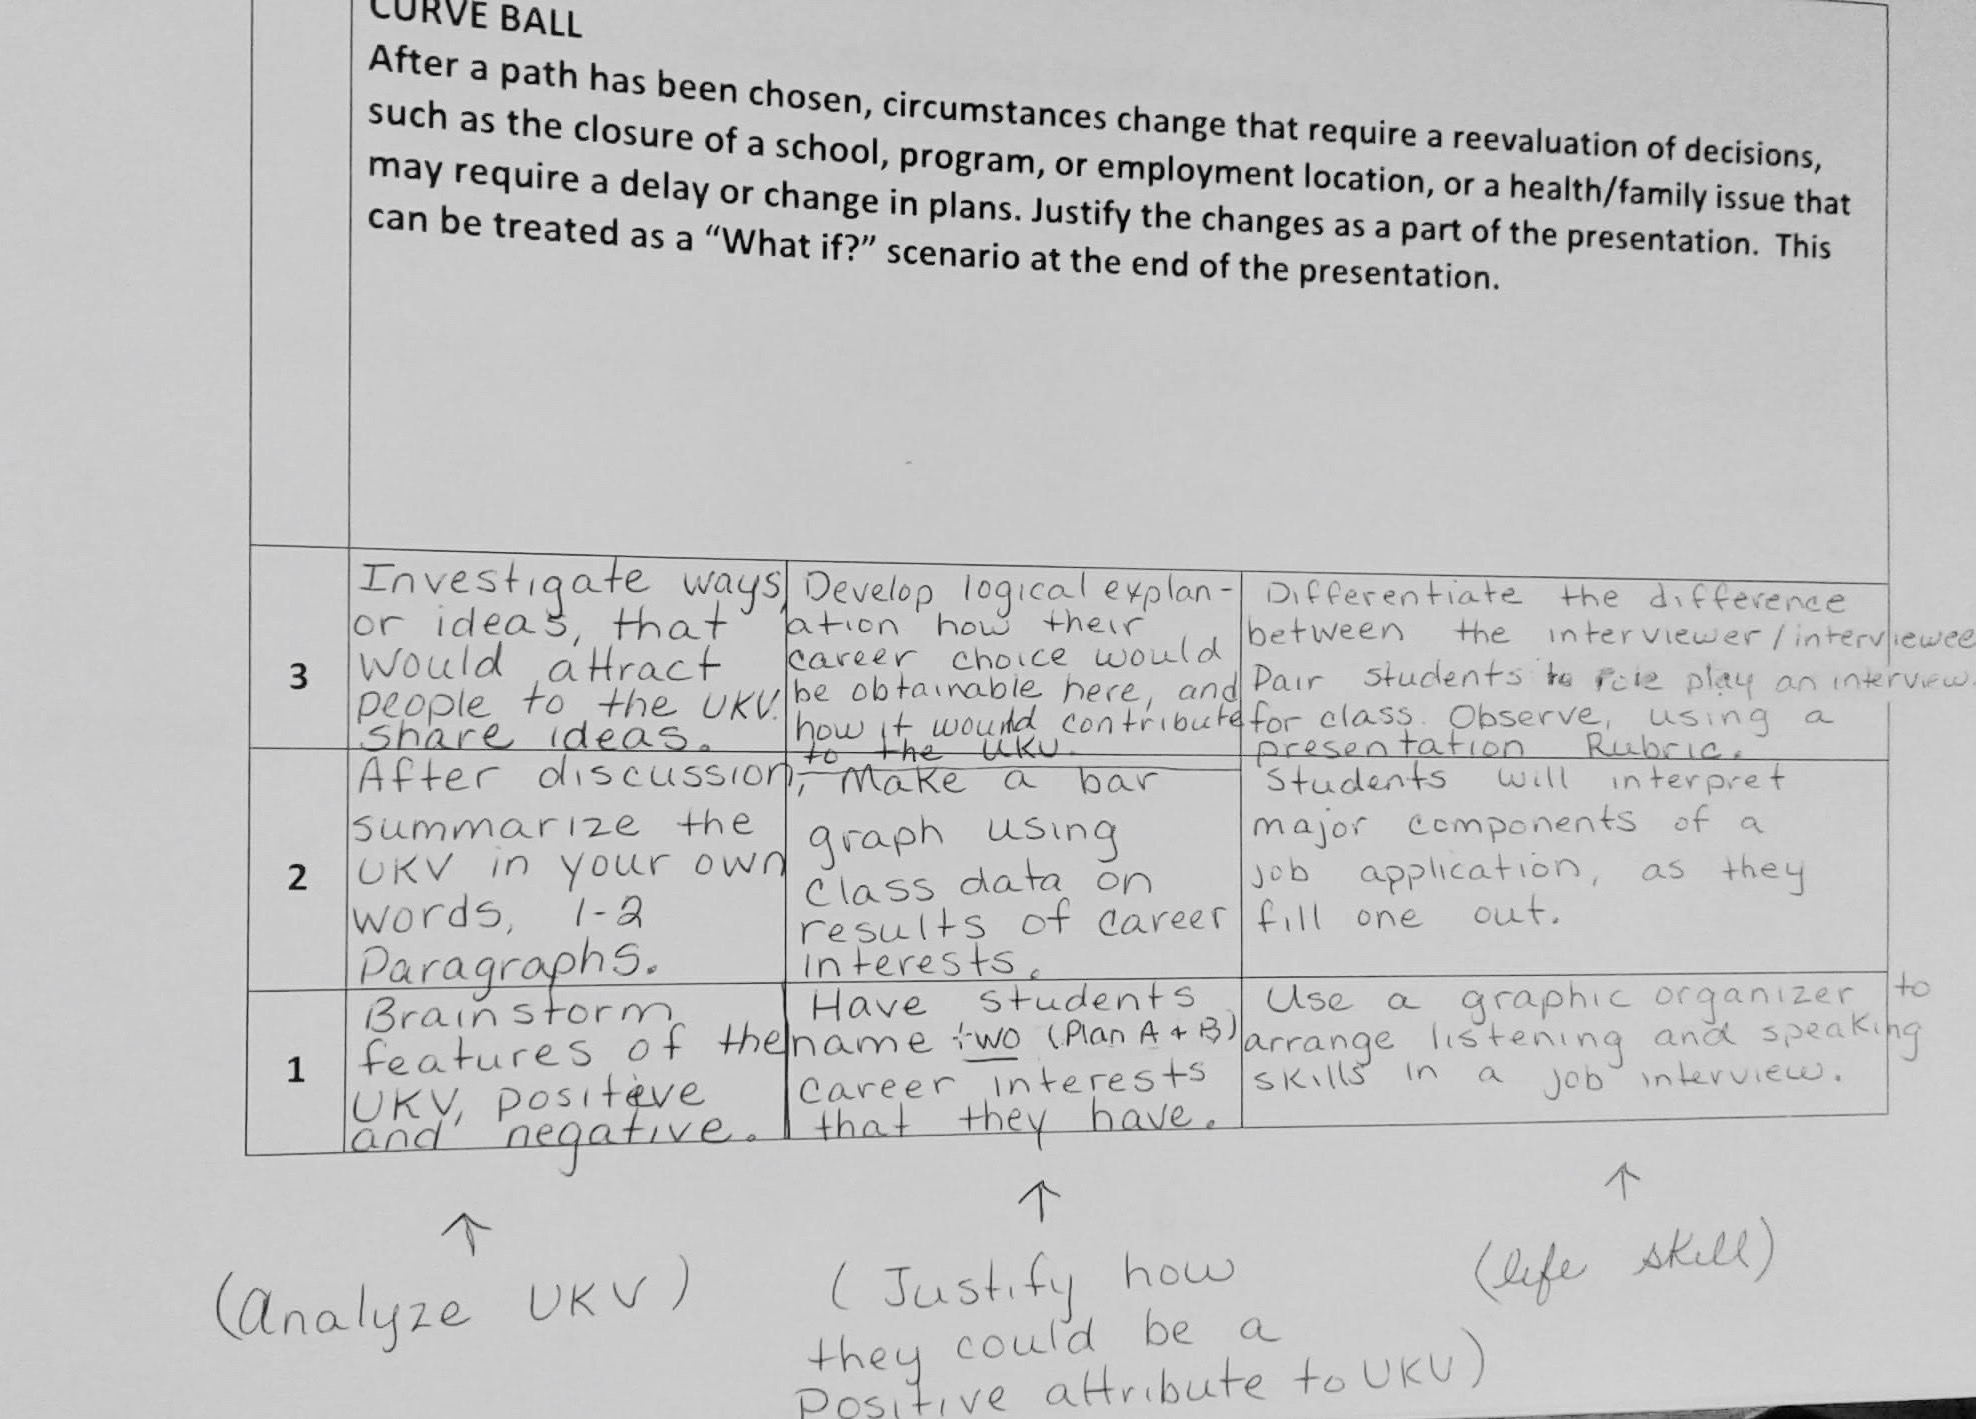 CURVE BALL
After a path has been chosen, circumstances change that require a reevaluation of decisions,
such as the closure of a school, program, or employment location, or a health/family issue that
may require a delay or change in plans. Justify the changes as a part of the presentation. This
can be treated as a “What if?” scenario at the end of the presentation.
3
Investigate ways,
or ideas, that
would attract
people to the UKV.
share ideas.
Develop logical explan-
ation how their
career choice would
be obtainable here, and
how it would contribute
to the UKV.
Differentiate the difference
between the interviewer/interviewee
Pair students to role play an interview.
for class. Observe, using a
presentation Rubric.
2
After discussion,
summarize the
UKV in your own
words, 1-2
Paragraphs.
Make a bar
graph using
class data on
results of career
interests.
Students will interpret
major components of a
job application, as they
fill one out.
1
Brainstorm
features of the
UKV, positive
and negative.
Have students
name two (Plan A + B)
career interests
that they have.
Use a graphic organizer to
arrange listening and speaking
skills in a job interview.
(Analyze UKV)
(Justify how
they could be a
Positive attribute to UKV)
(life skill)